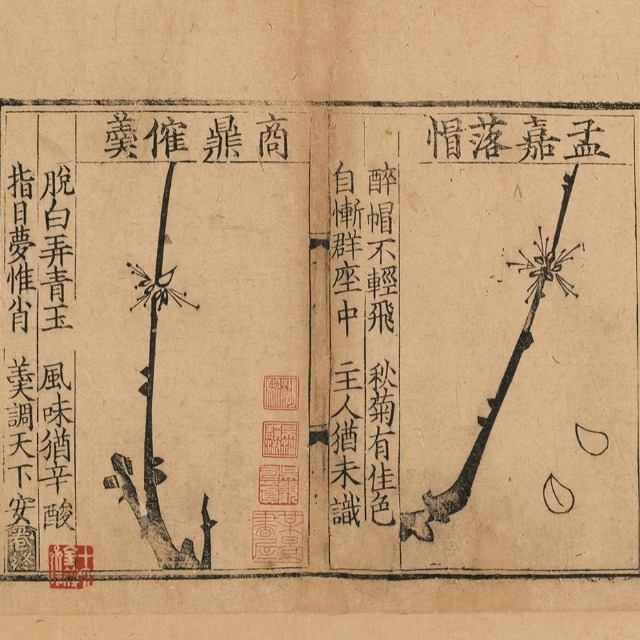 孟嘉落帽
醉帽不輕飛　秋菊有佳色
自慚群座中　主人猶未識
商鼎催羹
脫白弄青玉　風味猶辛酸
指日夢惟肖　羹調天下安